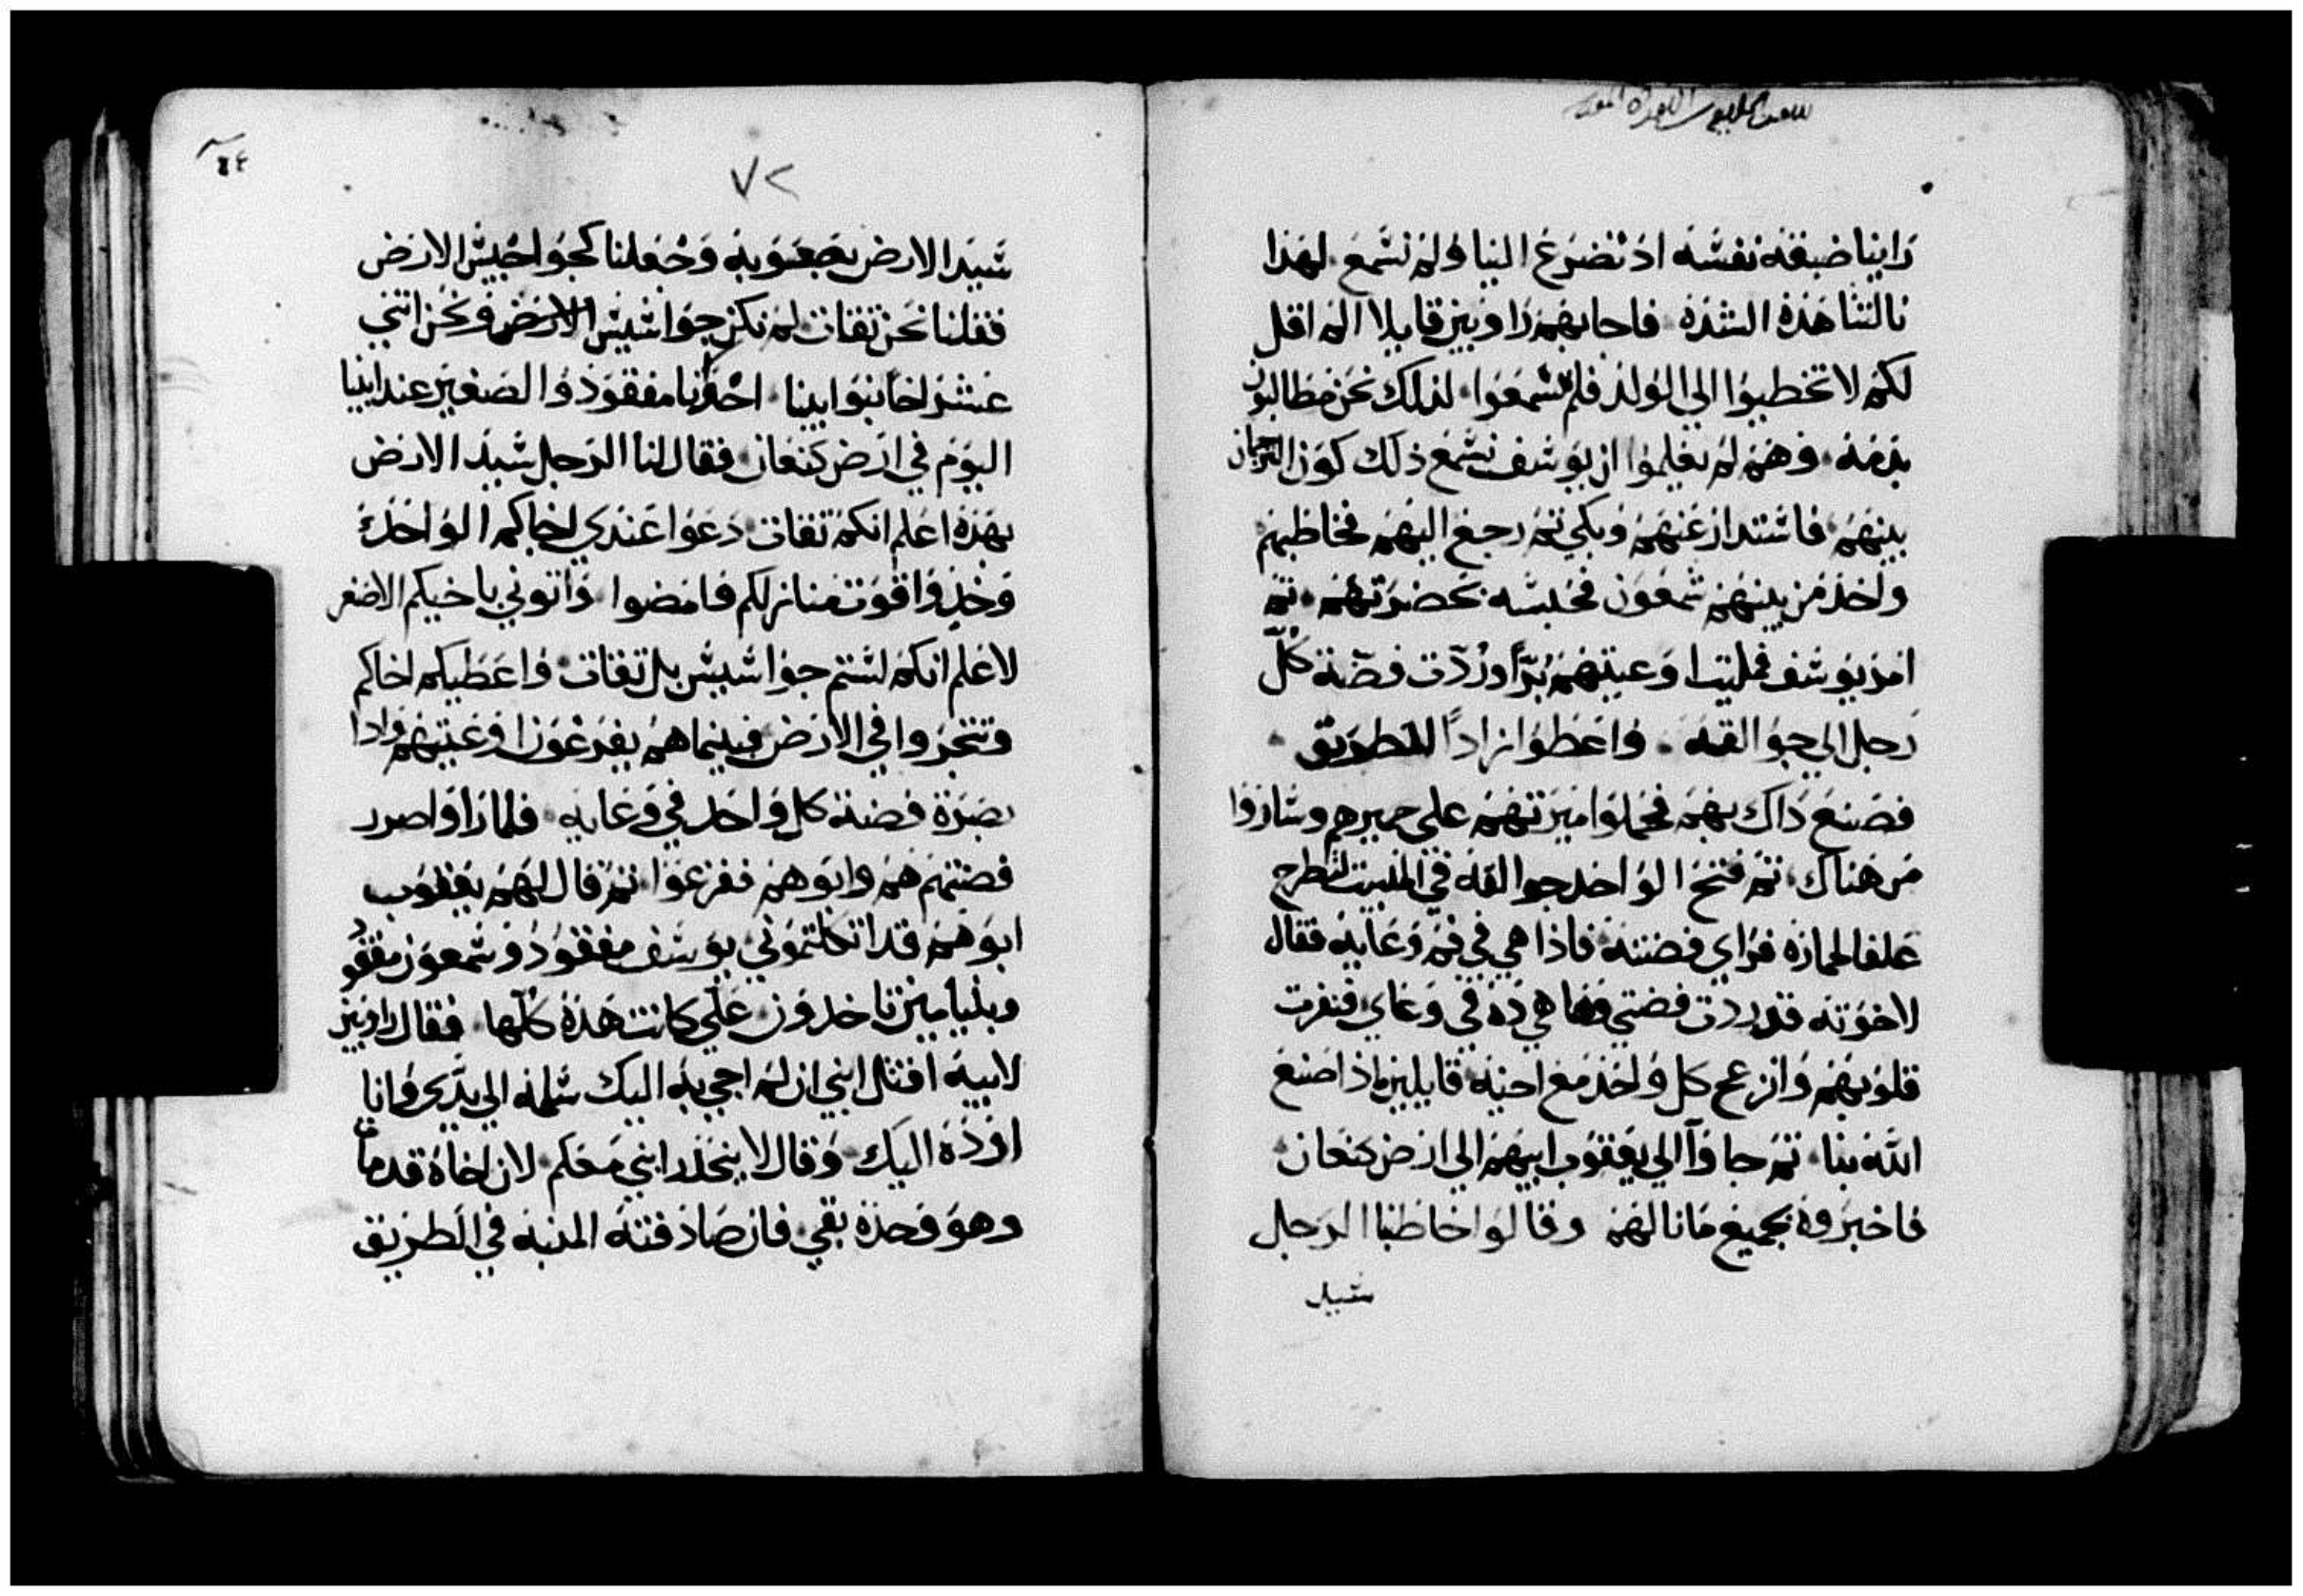 راينا ضيقة نفسه اذ تضرع الينا ولم نسمع لهذا
نالتنا هذه الشدة فاجابهم راوبين قايلا الم اقل
لكم لا تخطيوا الي الولد فلم تسمعوا لذلك نحن مطالبون
بدمه وهم لم يعلموا ان يوسف يسمع ذلك كون الترجمان
بينهم فاستدار عنهم وبكي ثم رجع اليهم فخاطبهم
واخذ من بينهم شمعون فحبسه بحضرتهم ثم
امر يوسف فمليت اوعيتهم برًا وردت فضة كل
رجل الي جوالقه واعطوا زادًا للطريق
فصنع ذاك بهم فحملوا ميرتهم علي حميرهم وساروا
من هناك ثم فتح الواحد جوالقه في المبيت ليطرح
علفا لحماره فراي فضته فاذا هي في فم وعايه فقال
لاخوته قد ردت فضتي وها هي ذه في وعاي فنفرت
قلوبهم وانزعج كل واحد مع اخيه قايلين ماذا صنع
الله بنا ثم جاوا الي يعقوب ابيهم الي ارض كنعان
فاخبروه بجميع ما نالهم وقالوا خاطبنا الرجل
سيد
٧٢
٦٤
سيد الارض بصعوبه وجعلنا كجواسيس الارض
فقلنا نحن ثقات لم نكن جواسيس الارض ونحن اثني
عشر اخا بنوا ابينا احدنا مفقود والصغير عند ابينا
اليوم في ارض كنعان فقال لنا الرجل سيد الارض
بهذه اعلم انكم ثقات دعوا عندي اخاكم الواحد
وخذوا قوت منازلكم فامضوا واتوني باخيكم الاصغر
لاعلم انكم لستم جواسيس بل ثقات واعطيكم اخاكم
وتتجروا في الارض فبينما هم يفرغون اوعيتهم واذا
بصرة فضة كل واحد في وعايه فلما راوا صرر
فضتهم هم وابوهم ففزعوا ثم قال لهم يعقوب
ابوهم قد اثكلتموني يوسف مفقود وشمعون مفقود
وبنيامين تاخدون علي كانت هذه كلها فقال راوبين
لابيه اقتل ابني ان لم اجي به اليك سلمه الي يدي وانا
اورده اليك وقال لا ينحدر ابني معكم لان اخاه قد مات
وهو وحده بقي فان صادفته المنيه في الطريق